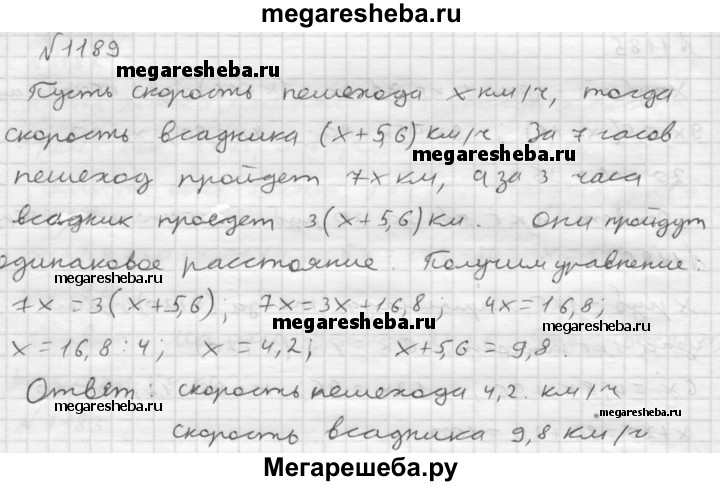 megaresheba.ru
№1189
megaresheba.ru
Пусть скорость пешехода x км/ч, тогда
скорость всадника (x+5,6) км/ч За 7 часов
megaresheba.ru
пешеход пройдет 7x км, а за 3 часа
всадник проедет 3(x+5,6) км. Они пройдут
одинаковое расстояние. Получим уравнение:
megaresheba.ru
7x=3(x+5,6); 7x=3x+16,8; 4x=16,8;
megaresheba.ru
megaresheba.ru
x=16,8:4; x=4,2; x+5,6=9,8.
Ответ: скорость пешехода 4,2 км/ч
megaresheba.ru
megaresheba.ru
скорость всадника 9,8 км/ч
Мегарешеба.ру